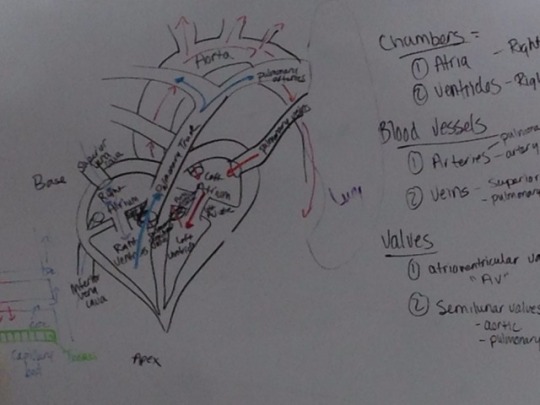 Aorta
pulmonary
arteries
Pulmonary Trunk
pulmonary veins
Superior
vena
cava
Base
Right
Atrium
Left
Atrium
Right
Ventricle
Left
Ventricle
Inferior
vena
cava
Apex
Lung
Capillary
bed
Tissues
Chambers =
① Atria - Right
② Ventricles - Righ
Blood Vessels
① Arteries - pulmona
- artery
② Veins - Superior
- pulmonary
Valves
① atrioventricular va
"AV"
② Semilunar valves
- aortic
- pulmonary